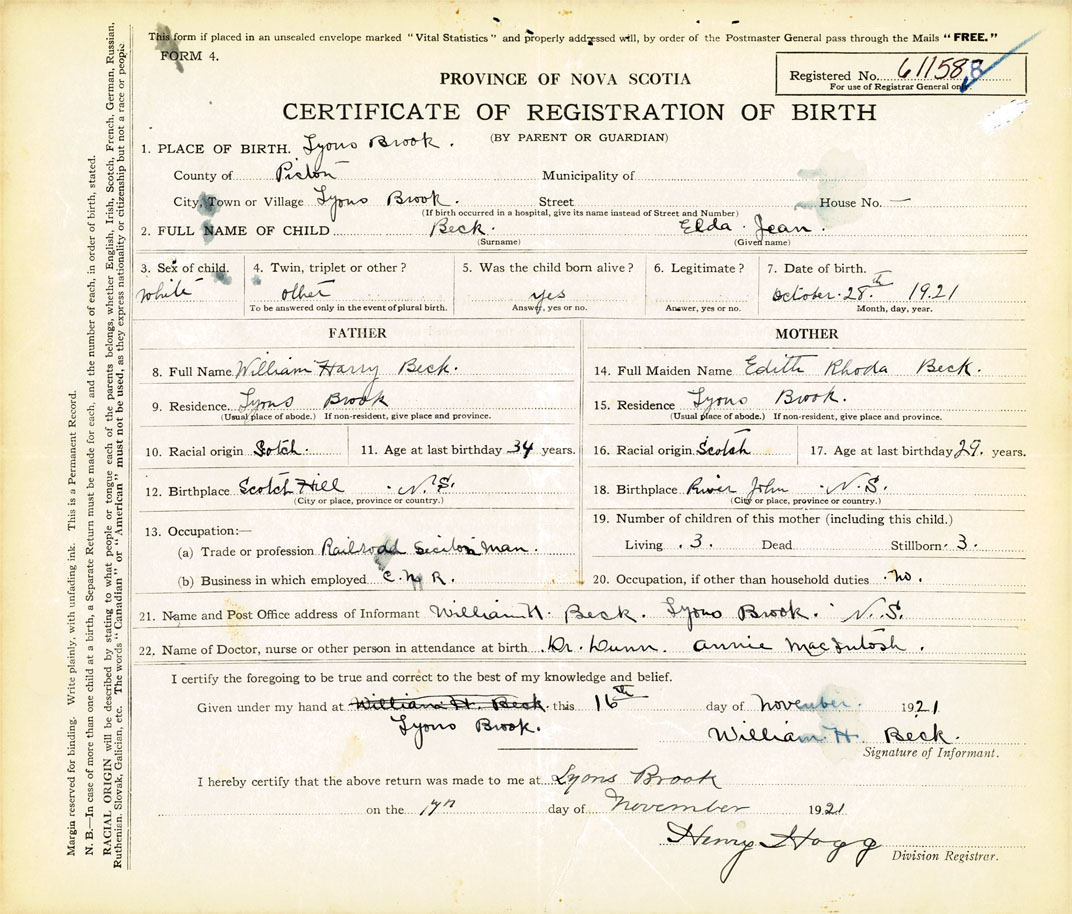 This form if placed in an unsealed envelope marked "Vital Statistics" and properly addressed will, by order of the Postmaster General pass through the Mails "FREE."
FORM 4.
Registered No. 61158
For use of Registrar General
PROVINCE OF NOVA SCOTIA
CERTIFICATE OF REGISTRATION OF BIRTH
(BY PARENT OR GUARDIAN)
1. PLACE OF BIRTH. Lyons Brook.
County of Pictou Municipality of
City, Town or Village Lyons Brook. Street House No. —
(If birth occurred in a hospital, give its name instead of Street and Number)
2. FULL NAME OF CHILD Beck. Elda Jean.
(Surname) (Given name)
3. Sex of child. 4. Twin, triplet or other? 5. Was the child born alive? 6. Legitimate? 7. Date of birth.
White other yes October 28th 1921
To be answered only in the event of plural birth. Answer, yes or no. Answer, yes or no. Month, day, year.
FATHER MOTHER
8. Full Name William Harry Beck. 14. Full Maiden Name Edith Rhoda Beck.
9. Residence Lyons Brook 15. Residence Lyons Brook.
(Usual place of abode.) If non-resident, give place and province. (Usual place of abode.) If non-resident, give place and province.
10. Racial origin Scotch. 11. Age at last birthday 34 years. 16. Racial origin Scotch 17. Age at last birthday 29. years.
12. Birthplace Scotch Hill N.S. 18. Birthplace River John N.S.
(City or place, province or country.) (City or place, province or country.)
13. Occupation:— 19. Number of children of this mother (including this child.)
(a) Trade or profession Railroad Seciton man. Living 3. Dead Stillborn 3.
(b) Business in which employed C.N.R. 20. Occupation, if other than household duties no.
21. Name and Post Office address of Informant William H. Beck. Lyons Brook. N.S.
22. Name of Doctor, nurse or other person in attendance at birth Dr. Dunn. Annie MacIntosh.
I certify the foregoing to be true and correct to the best of my knowledge and belief.
Given under my hand at William H. Beck. this 16th day of November. 1921
Lyons Brook. William H. Beck.
Signature of Informant.
I hereby certify that the above return was made to me at Lyons Brook
on the 17th day of November 1921
Henry Hogg
Division Registrar.
Margin reserved for binding. Write plainly, with unfading ink. This is a Permanent Record.
N. B.—In case of more than one child at a birth, a Separate Return must be made for each, and the number of each, in order of birth, stated.
RACIAL ORIGIN will be described by stating to what people or tongue each of the parents belongs, whether English, Irish, Scotch, French, German, Russian,
Ruthenian, Slovak, Galician, etc. The words "Canadian" or "American" must not be used, as they express nationality or citizenship but not a race or people